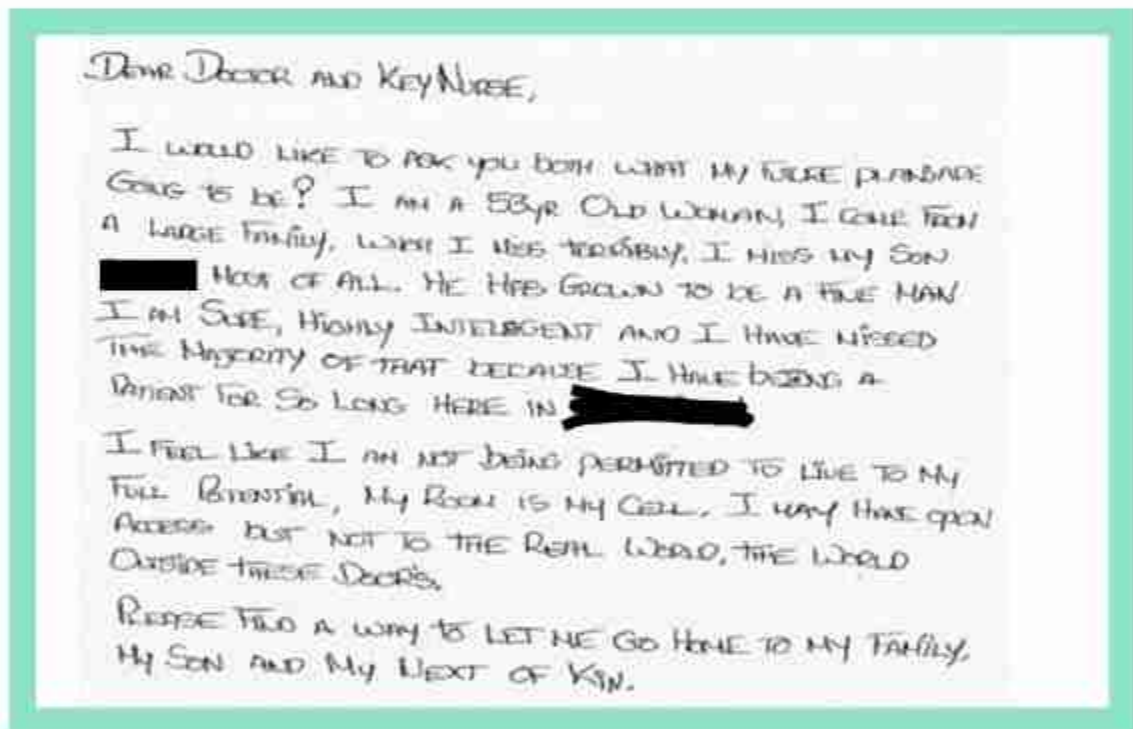 Dear Doctor and Key Nurse,
I would like to ask you both what my future plans are
going to be? I am a 53yr old woman, I come from
a large family, which I miss terribly. I miss my son
most of all. He has grown to be a fine man
I am sure, highly intelligent and I have missed
the majority of that because I have being a
patient for so long here in
I feel like I am not being permitted to live to my
full potential, my room is my cell. I may have open
access but not to the real world, the world
outside these door's.
Please find a way to let me go home to my family,
my son and my next of kin.